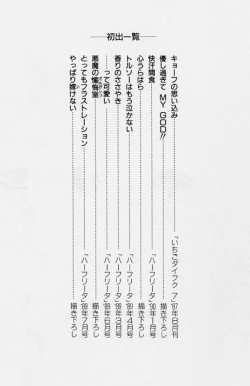 初出一覧
キョーフの思い込み……「いちごダイフク 7」'97年8月刊
優し過ぎて MY GOD!!……描き下ろし
快汗間食……「ハーフリータ」'90年1月号
心うらはら……描き下ろし
トルソーはもう泣かない……「ハーフリータ」'89年4月号
香りのささやき……「ハーフリータ」'89年3月号
……って可愛い……「ハーフリータ」'89年6月号
悪魔の懺悔室……描き下ろし
とってもフラストレーション……「ハーフリータ」'89年7月号
やっぱり嫁けない……描き下ろし